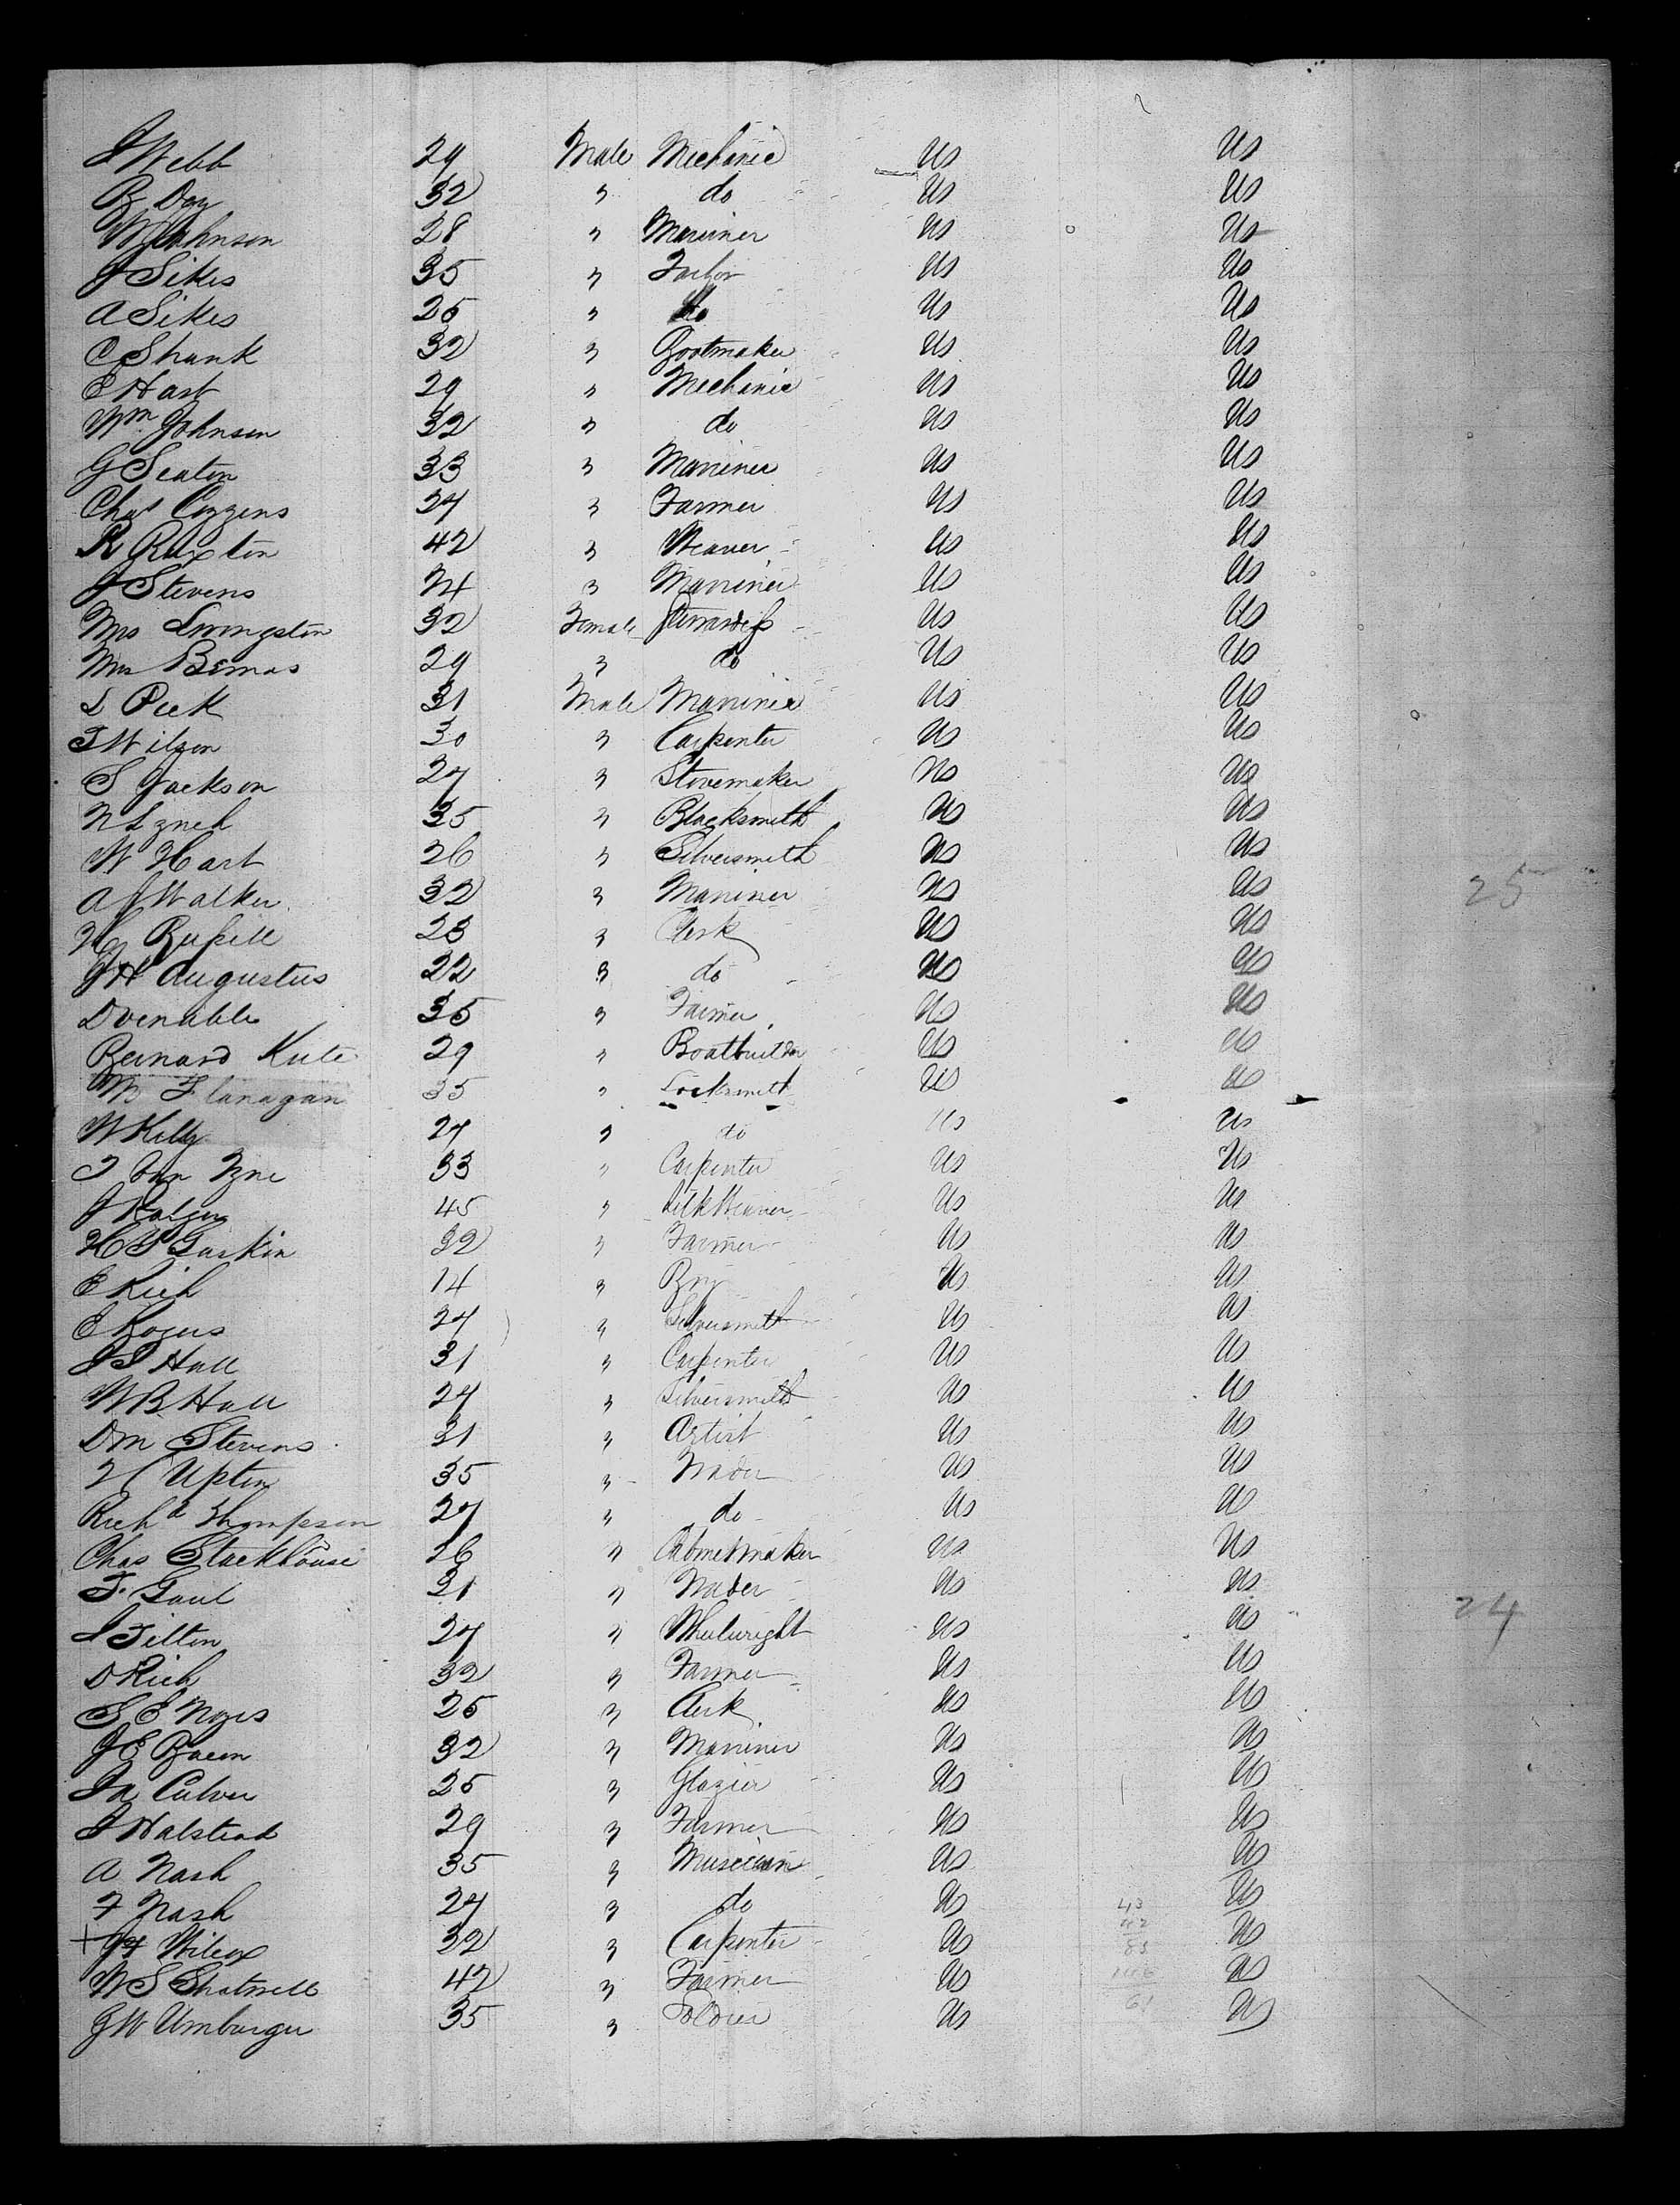 J Webb 29 Male Mechanic US US
B Day 32 " do US US
W Johnson 28 " Mariner US US
J Sikes 35 " US US
A Sikes 25 " do US US
C Shunk 32 " Bootmaker US US
E Hart 29 " Mechanic US US
Wm Johnson 32 " do US US
G Seaton 33 " Mariner US US
Chas Cozzens 27 " Farmer US US
R Ruxton 42 " Weaver US US
J Stevens 24 " Mariner US US
Mrs Livingston 32 Female Stewardess US US
Mrs Bemas 29 " do US US
D Peek 31 Male Mariner US US
T Wilson 30 " Carpenter US US
S Jackson 27 " Stovemaker US US
N Lynch 35 " Blacksmith US US
W Hart 26 " Silversmith US US
A J Walker 32 " Mariner US US 25
Hy 23 " Clerk US US
J H Augustus 22 " do US US
D Venable 35 " Farmer US US
Bernard Kute 29 " Boatbuilder US US
Flanagan 35 " Locksmith US US
W Kelly 27 " do US US
T Van Zyne 33 " Carpenter US US
J 45 " Silk Weaver US US
H S Gaskin 32 " Farmer US US
E Rich 14 " Boy US US
E Rogers 27 " Silversmith US US
J S Hall 31 " Carpenter US US
W B Hall 27 " Silversmith US US
D M Stevens 31 " Artist US US
H Upton 35 " Trader US US
Richd Thompson 27 " do US US
Chas Stackhouse 26 " Cabinetmaker US US
F. Gaul 31 " Trader US US
J Tilton 27 " Wheelwright US US 24
D Rich 32 " Farmer US US
S E Noyes 25 " Clerk US US
J E Bacon 32 " Mariner US US
Culver 25 " Glazier US US
J Halstead 29 " Farmer US US
A Nash 35 " Musician US US
F Nash 27 " do US 43 US
+ Wilcox 32 " Carpenter US 42 US
W S Shotwell 42 " Farmer US US
G W Umbarger 35 " Soldier US 61 US